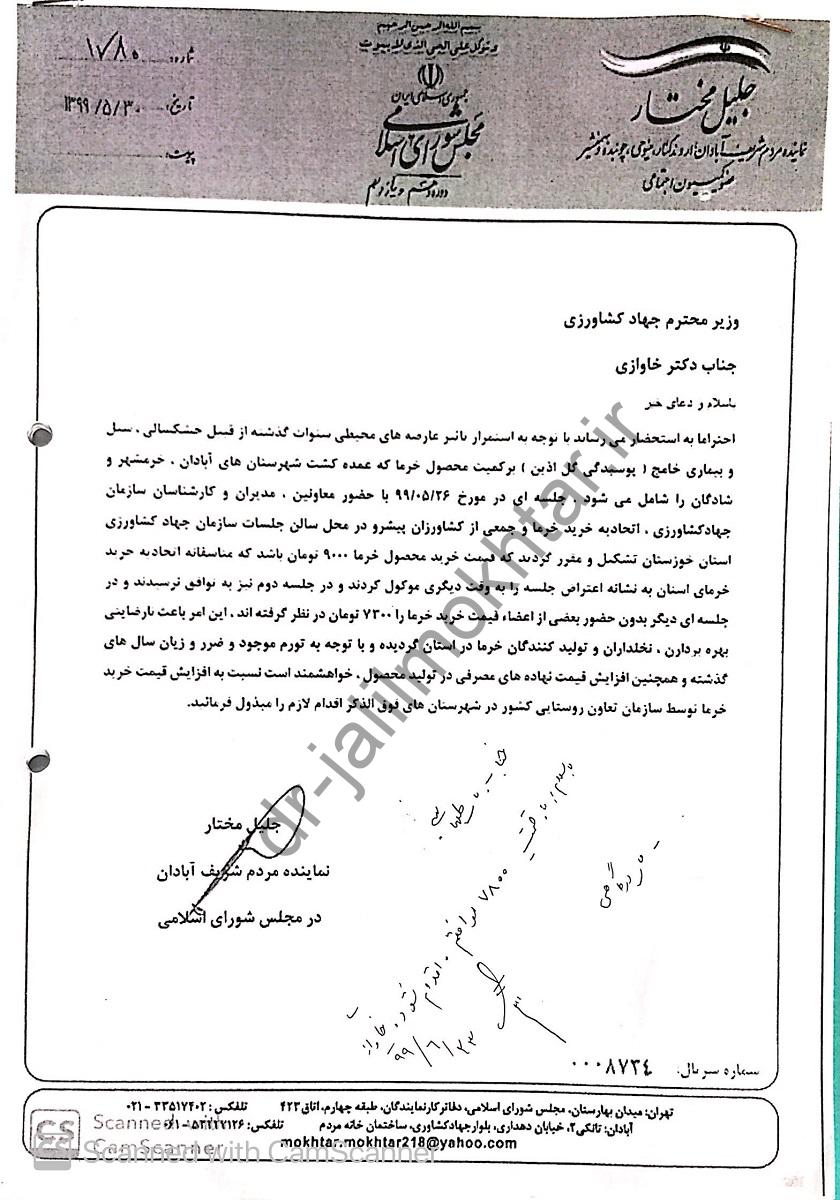 بسم الله الرحمن الرحیم
و توکل علی الحی الذی لا یموت
جمهوری اسلامی ایران
مجلس شورای اسلامی
دوره دهم و یازدهم
جلیل مختار
نماینده مردم شریف آبادان، اروندکنار، مینوحی، چوئبده و بهمنشیر
عضو کمیسیون اجتماعی
شماره: ۱۷۸۰
تاریخ: ۱۳۹۹/۵/۳۰
پیوست:
وزیر محترم جهاد کشاورزی
جناب دکتر خاوازی
باسلام و دعای خیر
احتراما به استحضار می رساند با توجه به استمرار تاثیر عارضه های محیطی سنوات گذشته از قبیل خشکسالی ، سیل
و بیماری خامج ( پوسیدگی گل آذین ) برکمیت محصول خرما که عمده کشت شهرستان های آبادان ، خرمشهر و
شادگان را شامل می شود . جلسه ای در مورخ ۹۹/۰۵/۲۶ با حضور معاونین ، مدیران و کارشناسان سازمان
جهادکشاورزی ، اتحادیه خرید خرما و جمعی از کشاورزان پیشرو در محل سالن جلسات سازمان جهاد کشاورزی
استان خوزستان تشکیل و مقرر گردید که قیمت خرید محصول خرما ۹۰۰۰ تومان باشد که متاسفانه اتحادیه خرید
خرمای استان به نشانه اعتراض جلسه را به وقت دیگری موکول کردند و در جلسه دوم نیز به توافق نرسیدند و در
جلسه ای دیگر بدون حضور بعضی از اعضاء قیمت خرید خرما را ۷۳۰۰ تومان در نظر گرفته اند ، این امر باعث نارضایتی
بهره بردارن ، نخلداران و تولید کنندگان خرما در استان گردیده و با توجه به تورم موجود و ضرر و زیان سال های
گذشته و همچنین افزایش قیمت نهاده های مصرفی در تولید محصول ، خواهشمند است نسبت به افزایش قیمت خرید
خرما توسط سازمان تعاون روستایی کشور در شهرستان های فوق الذکر اقدام لازم را مبذول فرمائید.
جلیل مختار
نماینده مردم شریف آبادان
در مجلس شورای اسلامی
باسلام
با قیمت ۷۸۰۰
اقدام شود
۹۹/۶/۲۳
شماره سریال: ۰۰۰۸۷۳۴
تهران: میدان بهارستان، مجلس شورای اسلامی، دفاتر کار نمایندگان، طبقه چهارم، اتاق ۴۲۳ تلفکس: ۳۳۵۱۷۴۰۲ - ۰۲۱
آبادان: تانکی۲، خیابان دهداری، بلوار جهادکشاورزی، ساختمان خانه مردم تلفکس: ۵۳۲۲۷۱۲۶ - ۰۶۱
mokhtar.mokhtar218@yahoo.com
dr-jalilmokhtar.ir
CS
Scanned with
CamScanner
Scanned with CamScanner